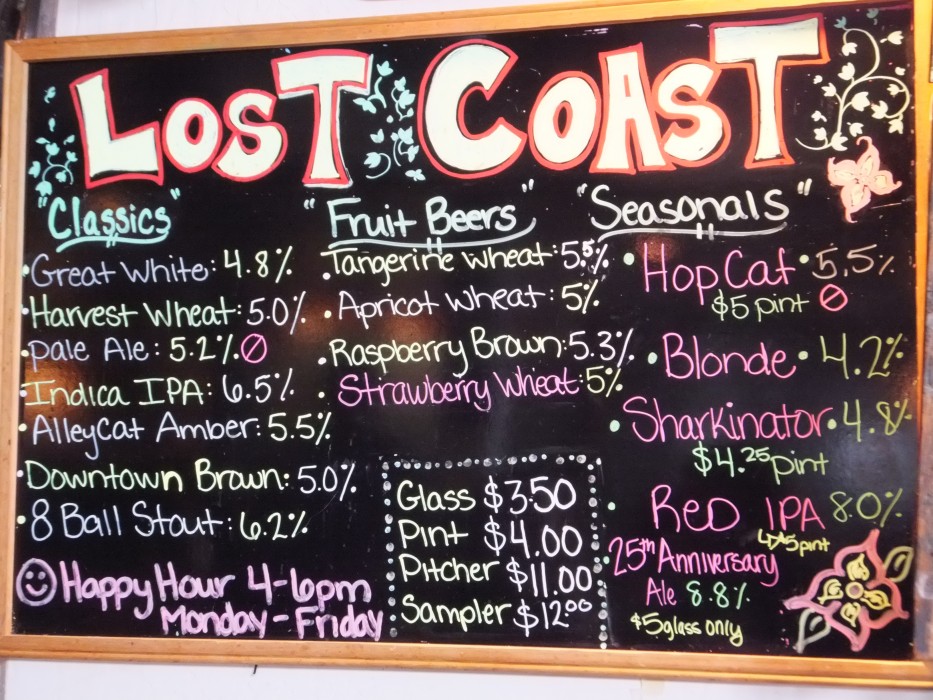 LOST COAST
"Classics"
• Great White: 4.8%
• Harvest Wheat: 5.0%
• Pale Ale: 5.2%
• Indica IPA: 6.5%
• AlleyCat Amber: 5.5%
• Downtown Brown: 5.0%
• 8 Ball Stout: 6.2%
Happy Hour 4-6pm
Monday - Friday
"Fruit Beers"
• Tangerine Wheat: 5.5%
• Apricot Wheat: 5%
• Raspberry Brown: 5.3%
• Strawberry Wheat: 5%
Glass $3.50
Pint $4.00
Pitcher $11.00
Sampler $12.00
"Seasonals"
• Hop Cat • 5.5%
$5 pint
• Blonde • 4.2%
• Sharkinator • 4.8%
$4.25 pint
• Red IPA 8.0%
pint
25th Anniversary
Ale 8.8%
$5 glass only